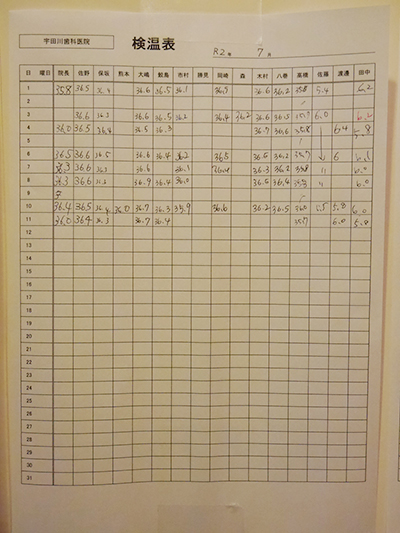 宇田川歯科医院
検温表
R2年 7月
日 曜日 院長 佐野 保坂 熊本 大嶋 鮫島 市村 勝見 岡崎 森 木村 八巻 高橋 佐藤 渡邊 田中
1 35.8 36.5 36.4 36.6 36.5 36.1 36.7 36.6 36.2 35.8 5.4 6.2
2
3 36.6 36.3 36.6 36.5 36.2 36.4 36.2 36.6 36.5 35.7 6.0 6.2
4 36.0 36.5 36.4 36.5 36.3 36.7 36.6 35.8 6.4 5.8
5
6 36.5 36.6 36.5 36.6 36.4 36.2 36.5 36.5 36.2 35.7 6
7 36.3 36.6 36.3 36.6 36.1 36.3 36.2 35.8 〃 6.0
8 36.3 36.6 36.3 36.9 36.4 36.0 36.5 36.4 〃 6.0
9
10 36.4 36.5 36.4 36.0 36.7 36.3 35.9 36.6 36.2 36.5 36.0 5.5 5.8 6.0
11 36.0 36.4 36.3 36.7 36.4 35.7 6.0 5.8
12
13
14
15
16
17
18
19
20
21
22
23
24
25
26
27
28
29
30
31